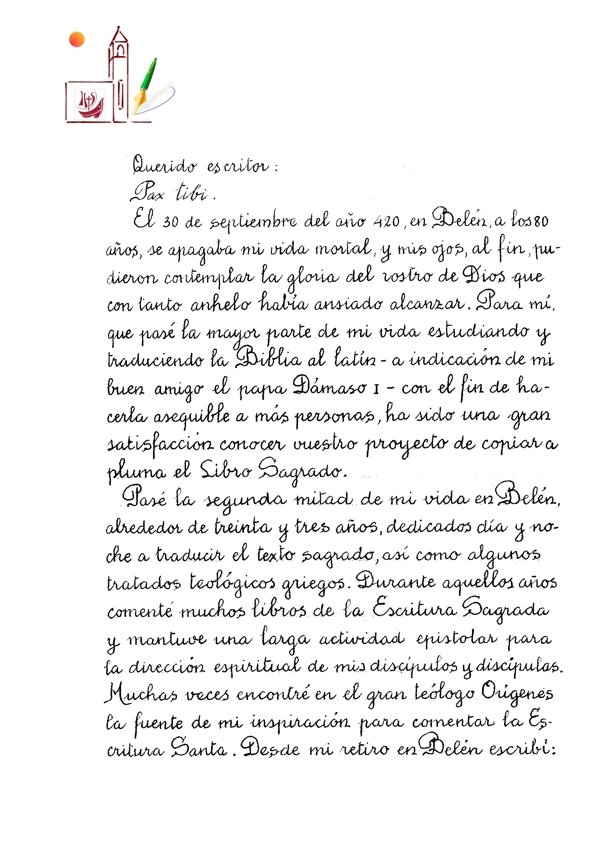 Querido escritor:
Pax tibi.
El 30 de septiembre del año 420, en Belén, a los 80
años, se apagaba mi vida mortal, y mis ojos, al fin, pu-
dieron contemplar la gloria del rostro de Dios que
con tanto anhelo había ansiado alcanzar. Para mí,
que pasé la mayor parte de mi vida estudiando y
traduciendo la Biblia al latín - a indicación de mi
buen amigo el papa Dámaso I - con el fin de ha-
cerla asequible a más personas, ha sido una gran
satisfacción conocer vuestro proyecto de copiar a
pluma el Libro Sagrado.
Pasé la segunda mitad de mi vida en Belén,
alrededor de treinta y tres años, dedicados día y no-
che a traducir el texto sagrado, así como algunos
tratados teológicos griegos. Durante aquellos años
comenté muchos libros de la Escritura Sagrada
y mantuve una larga actividad epistolar para
la dirección espiritual de mis discípulos y discípulas.
Muchas veces encontré en el gran teólogo Orígenes
la fuente de mi inspiración para comentar la Es-
critura Santa. Desde mi retiro en Belén escribí: